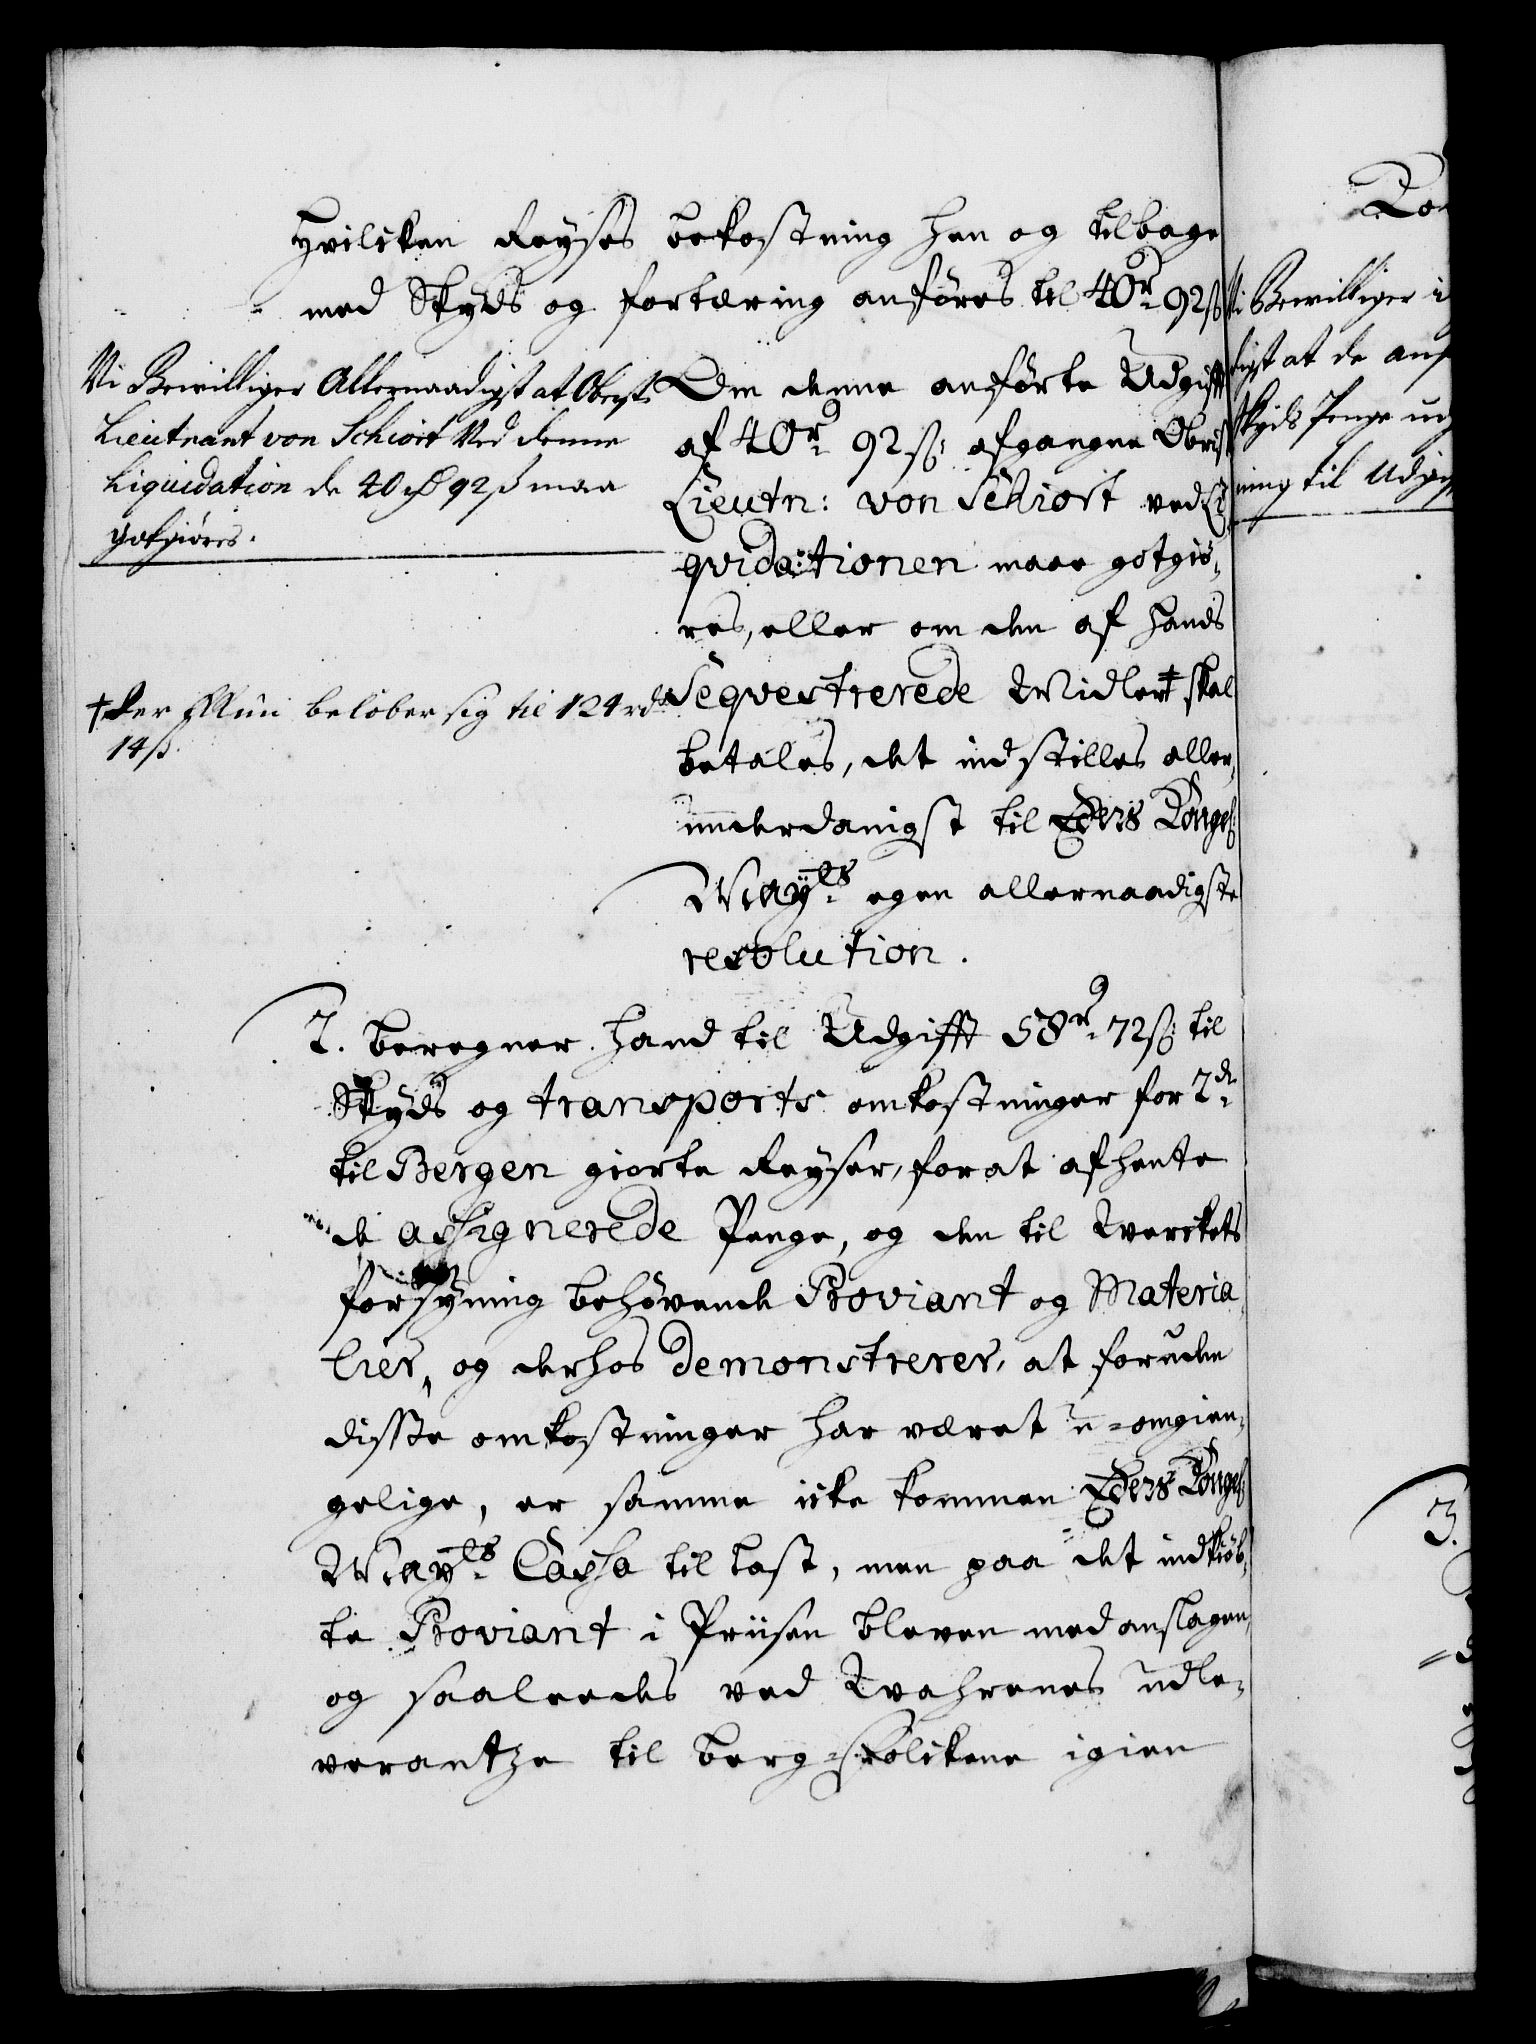 Hvilcken Reyses bekostning hen og tilbage
med Skyds og fortæring anföres til 40 rd 92 ß
Vi Bewilliger Allernaadigst at Oberst
Lieutnant von Schiort Ved denne
Liquidation de 40 rd 92 ß maa
gotgiöres.
Om denne anförte Udgifft
af 40 rd 92 ß: afgangne Obrist
Lieutn: von Schiort ved Li
qvidationen maae gotgiö-
res, eller om den af hands
Seqvestrerede Midler † skal
betales, det indstilles aller-
underdanigst til Eders Konge:
Mayts egen allernaadigste
resolution.
† der beløber sig til 124 rd
14 ß.
2. beregner hand til Udgifft 58 rd 72 ß: til
Skyds og transports omkostninger for 2de
til Bergen giorte Reyser, for at afhente
de assignerede Penge, og den til Werckets
forsyning behövende Proviant og Materia
lier, og derhos demonstrerer, at foruden
disse omkostninger har været u-omgien-
gelige, er samme icke kommen Eders Konge:
Mayts Cassa til last, men paa det indkiöb-
te Proviant i Priisen bleven med anslagen,
og saaleedes ved Wahrenes udle-
verantze til berg-folckene igien
Vi Bewilliger
digst at de anf
Skyds Penge ud
ning til Udgif
3.